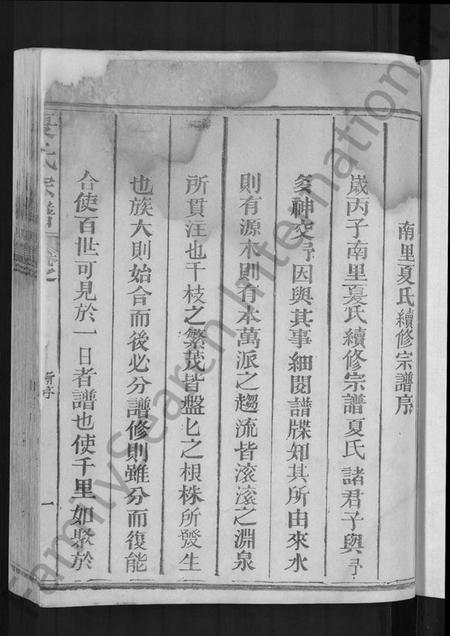 南里夏氏續修宗譜序
歲丙子南里夏氏續修宗譜夏氏諸君子與予
多神交予因與其事細閱譜牒知其所由來水
則有源木則有本萬派之趨流皆滚滚之淵泉
所貫注也千枝之繁茂皆盤匕之根株所發生
也族大則始合而後必分譜修則雖分而復能
合使百世可見於一日者譜也使千里如聚於
夏氏宗譜
序
一
FamilySearch International